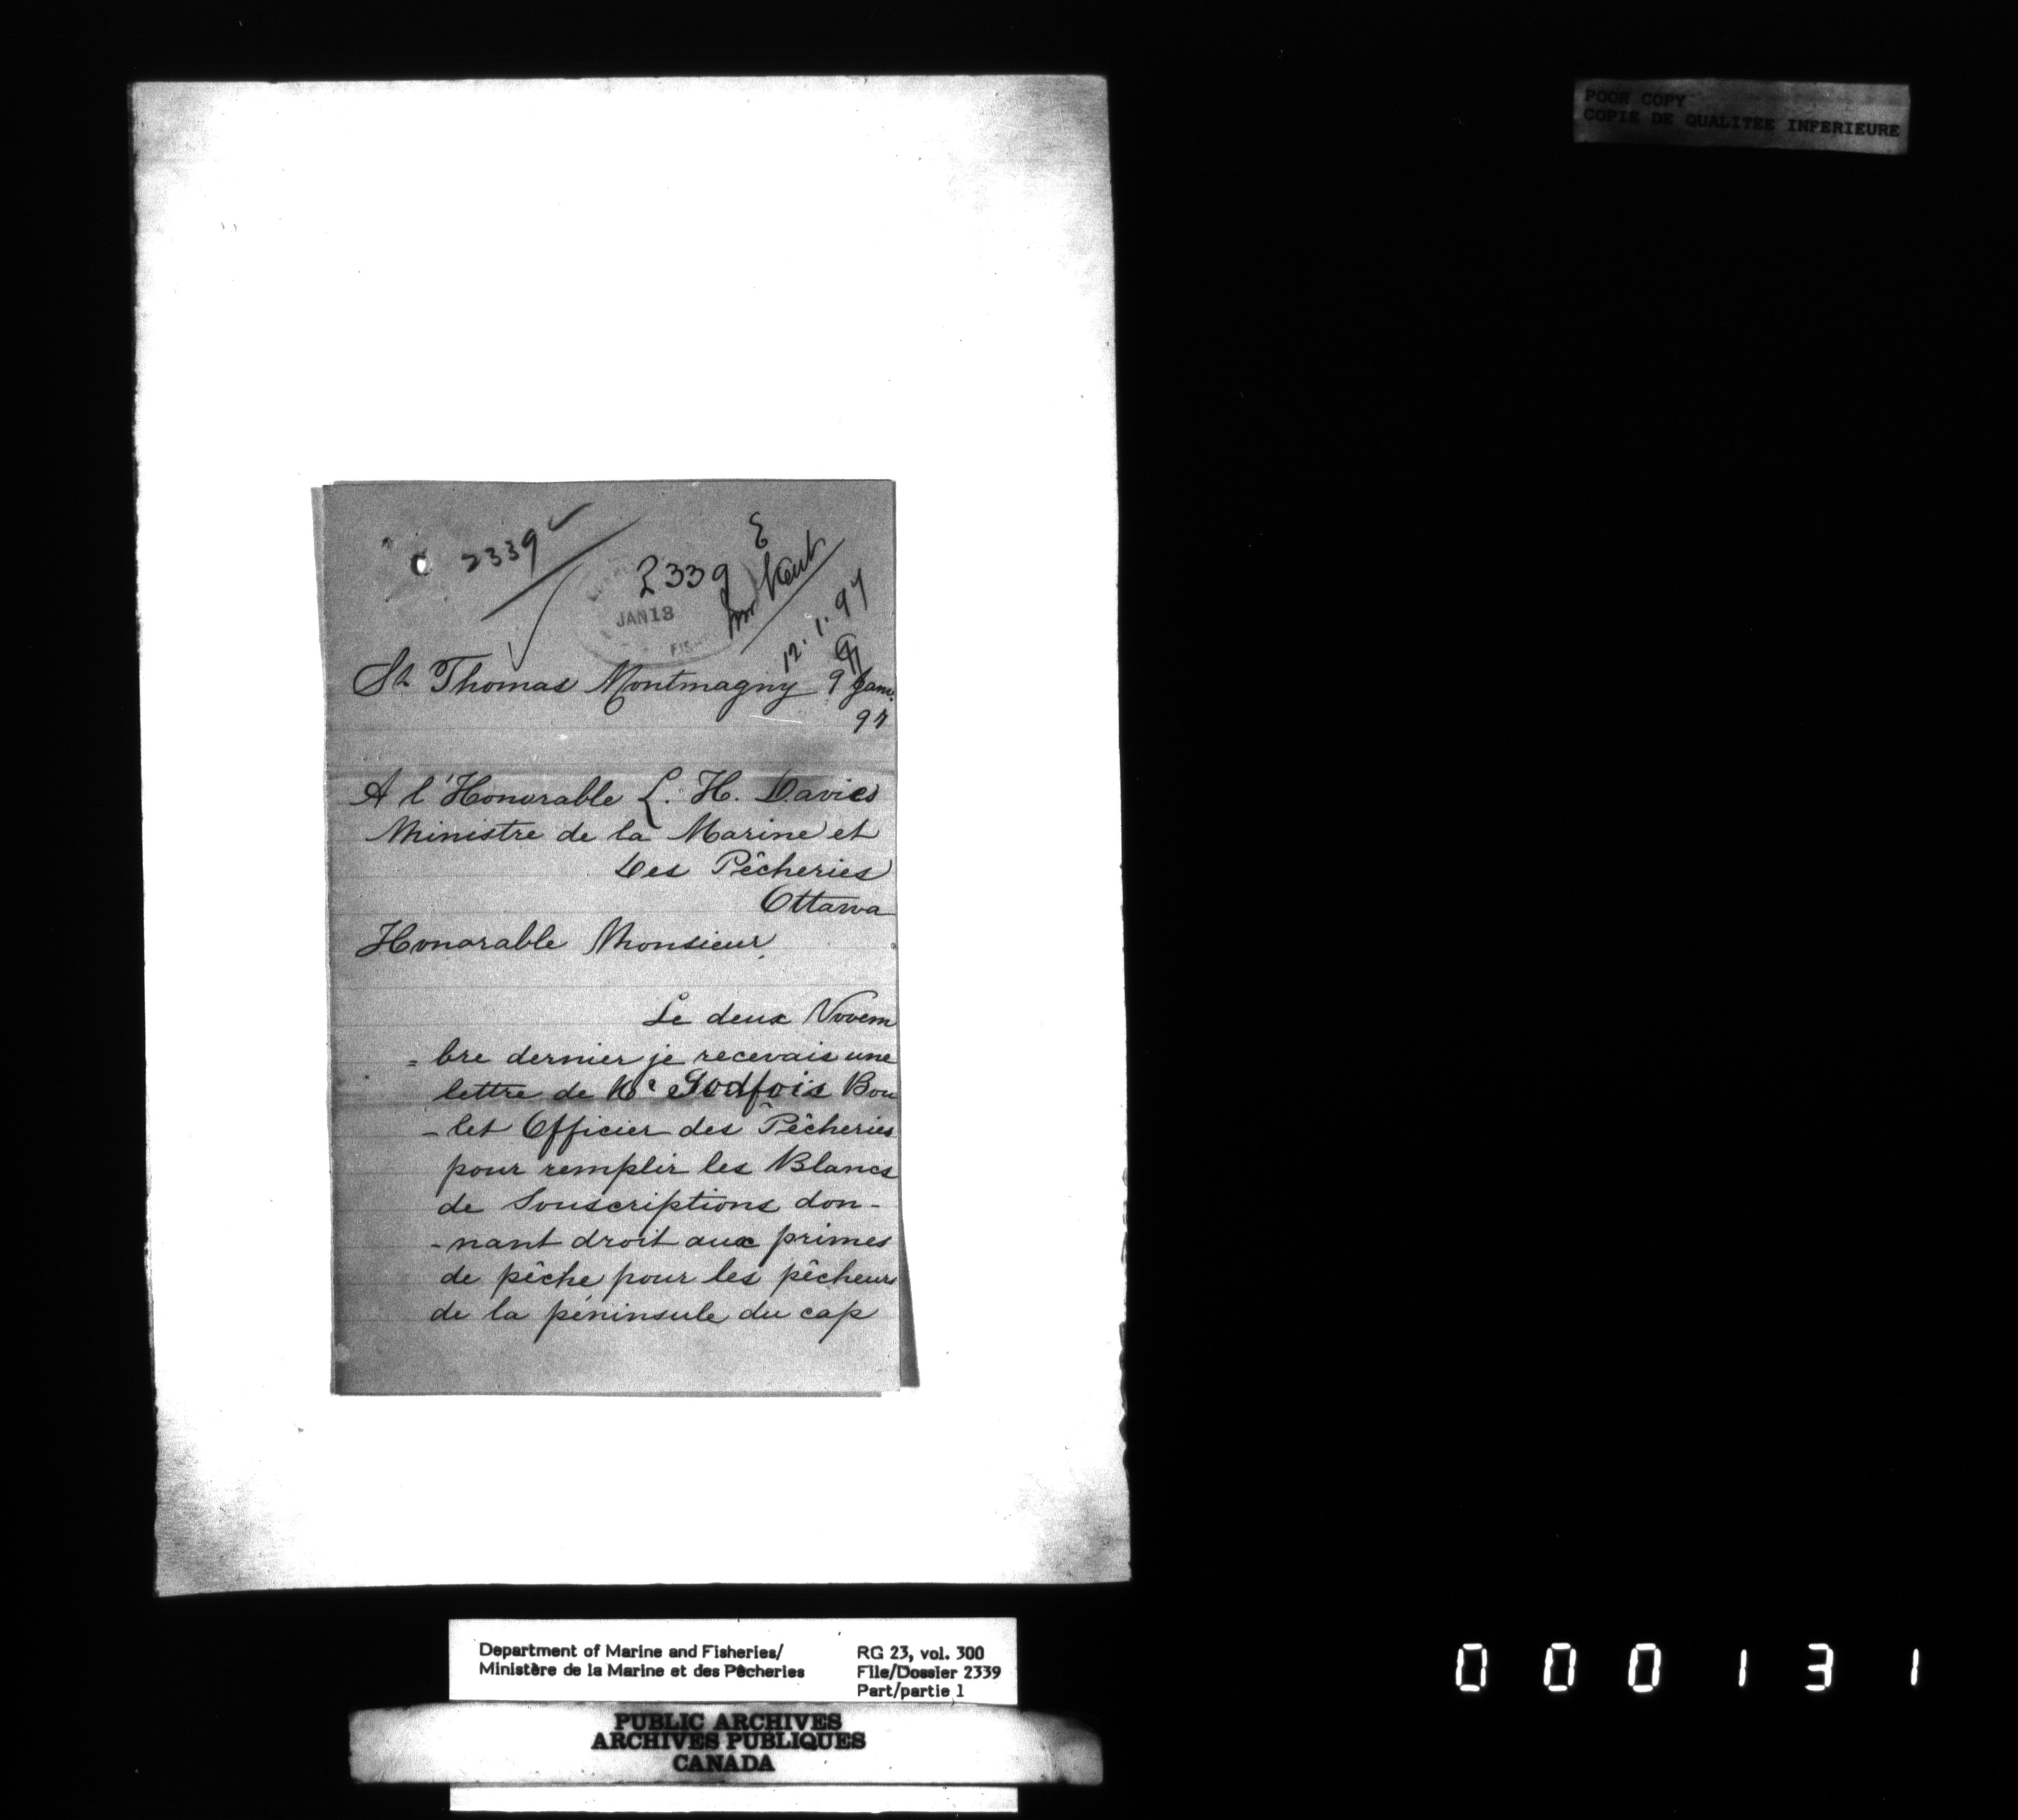 POOR COPY
COPIE DE QUALITEE INFERIEURE
2339
2339
E
Mr Kent
JAN 13
FIS
12.1.97
St Thomas Montmagny 9 Janv.
97
A l'Honorable L. H. Davies
Ministre de la Marine et
Des Pêcheries
Ottawa
Honorable Monsieur,
Le deux Novem
= bre dernier je recevais une
lettre de Godfois Bou
- let Officier des Pêcheries
pour remplir les Blancs
de Souscriptions don-
- nant droit aux primes
de pêche pour les pêcheurs
de la péninsule du cap
Department of Marine and Fisheries/
Ministère de la Marine et des Pêcheries
RG 23, vol. 300
File/Dossier 2339
Part/partie 1
PUBLIC ARCHIVES
ARCHIVES PUBLIQUES
CANADA
000131